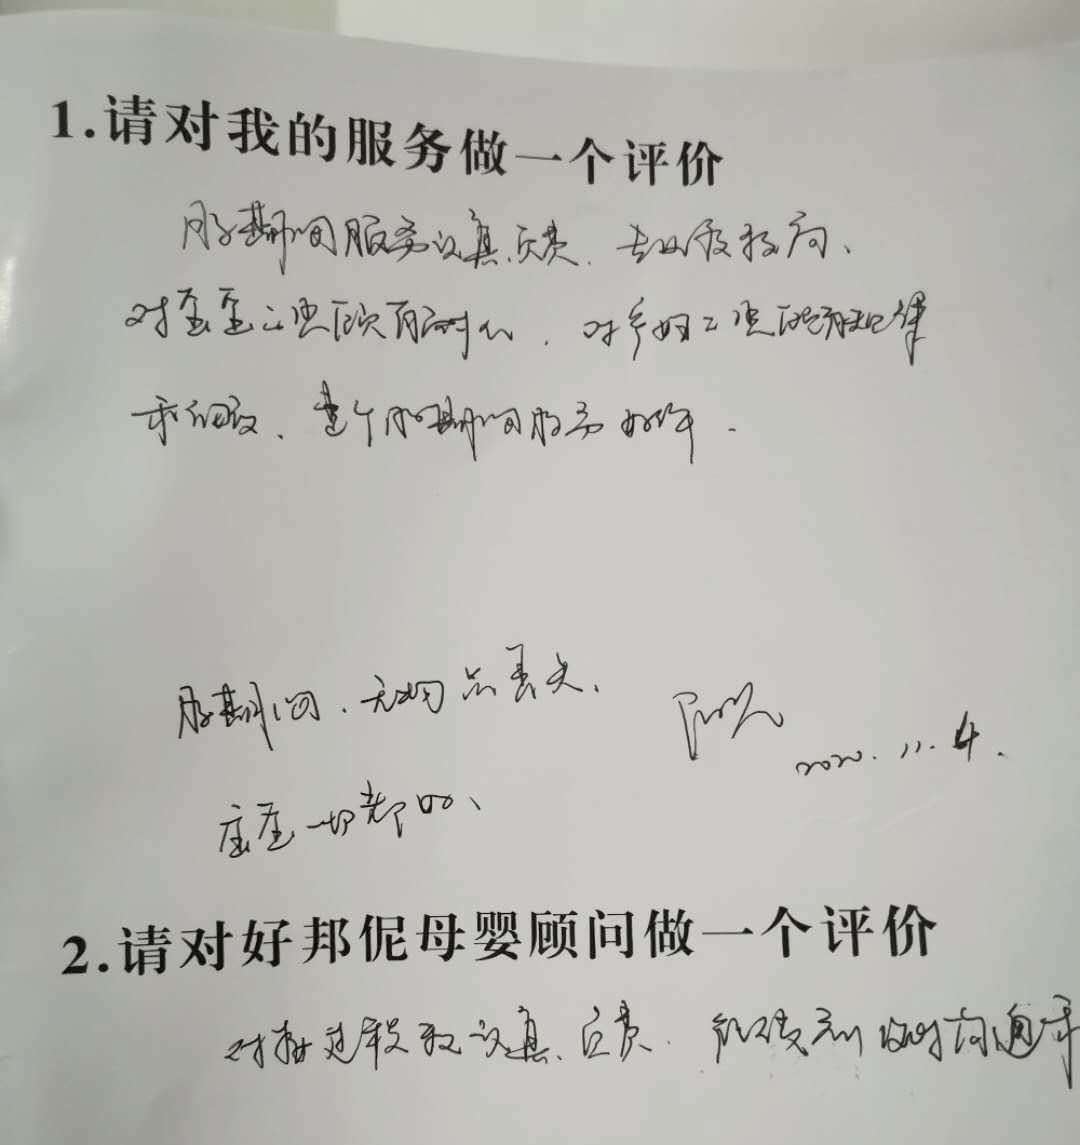 1.请对我的服务做一个评价
服务期间服务认真、负责、专业度较高、
对宝宝的照顾有耐心、对产妇的照顾有规律
和细致、整个服务期间服务好评.
服务期间、无物品丢失、
2020.11.4.
宝宝一切都好、
2.请对好邦伲母婴顾问做一个评价
对接过程认真、负责、及时沟通